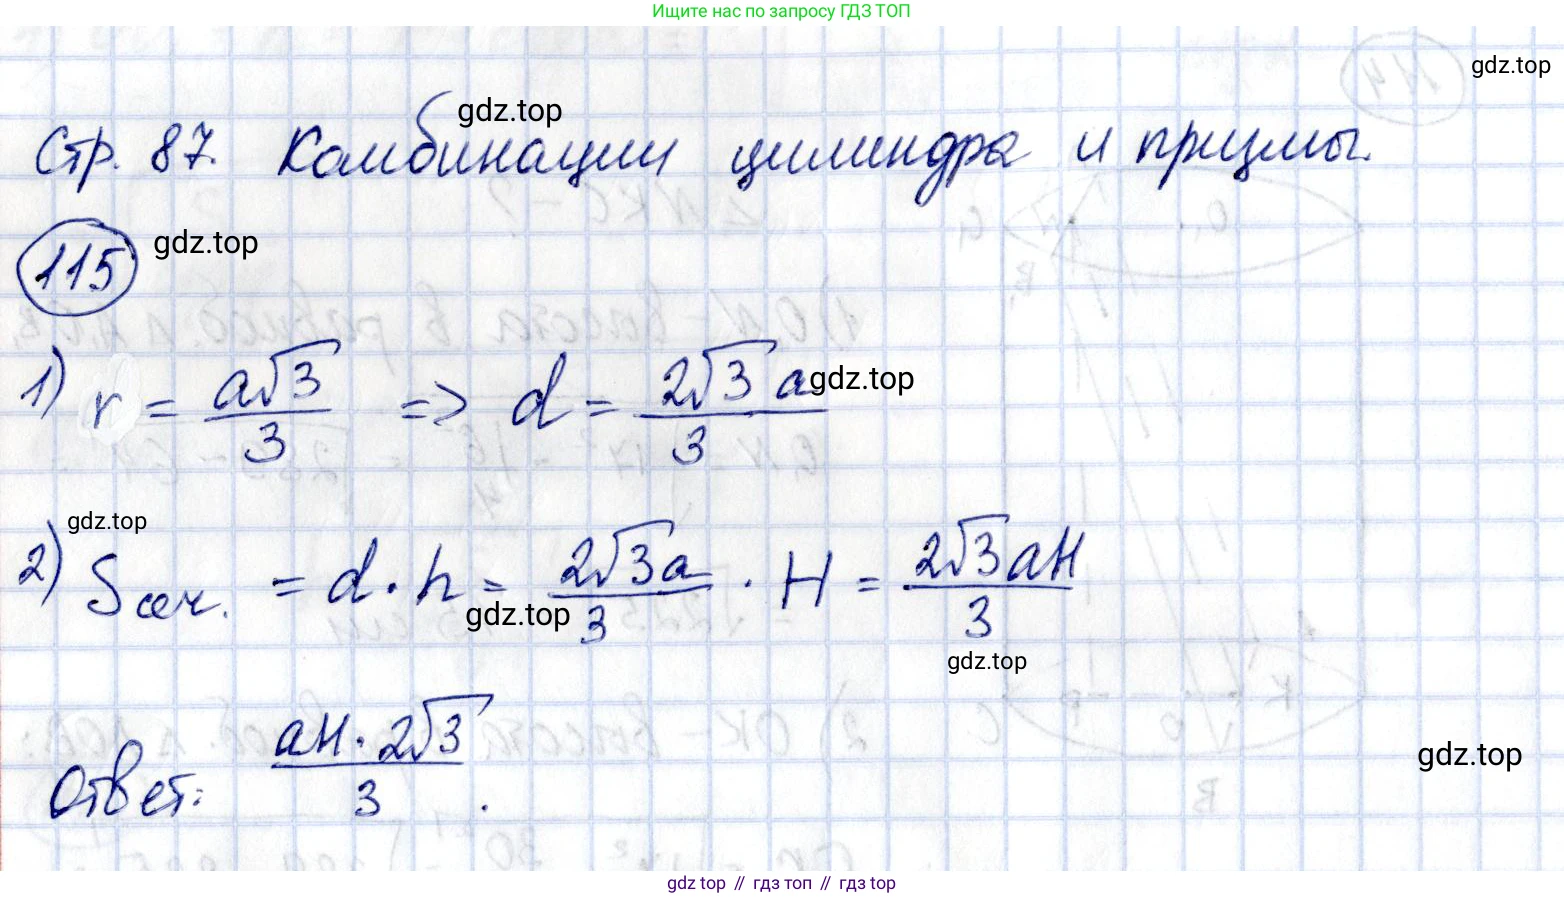 Ищите нас по запросу ГДЗ ТОП
gdz.top
gdz.top
Стр. 87. Комбинации цилиндра и призмы.
115 gdz.top
1) r = a√3/3 => d = 2√3 a/3 gdz.top
gdz.top
2) Sсеч. = d · h = 2√3a/3 · H = 2√3aH/3
gdz.top
gdz.top
Ответ: aH · 2√3/3.
gdz.top
gdz top // гдз топ // гдз top